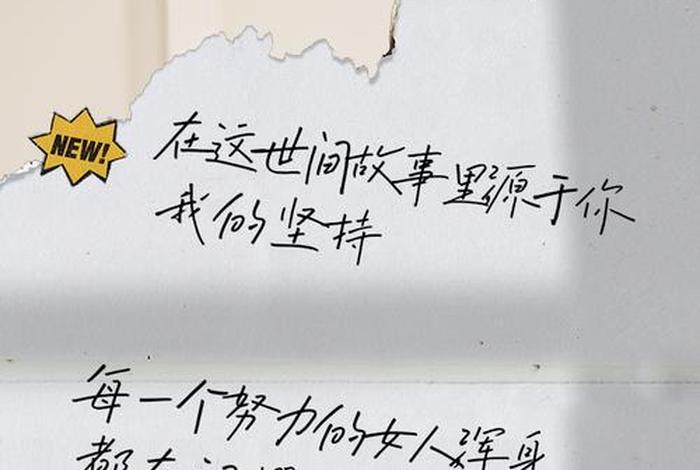 NEW!
在这世间故事里源于你
我的坚持
每一个努力的女人浑身
都在